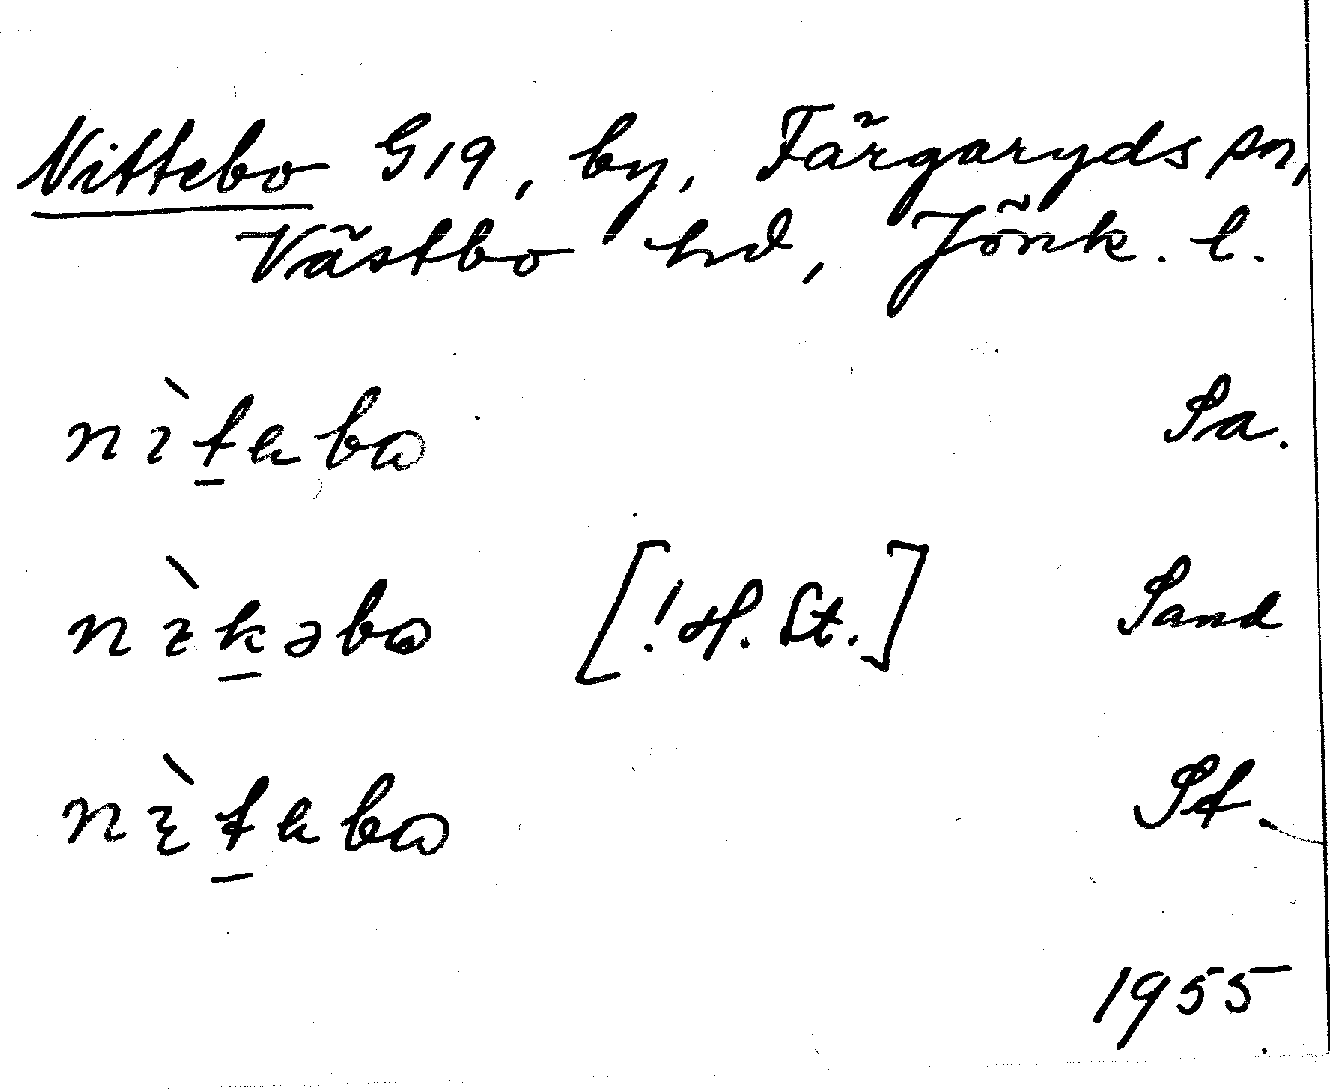 Nittebo G19, by, Färgaryds sn,
Västbo hd, Jönk. l.
nìt̲ebω Sa.
nìk̲əbω [! H. St.] Sand
nìt̲ebω St.
1955